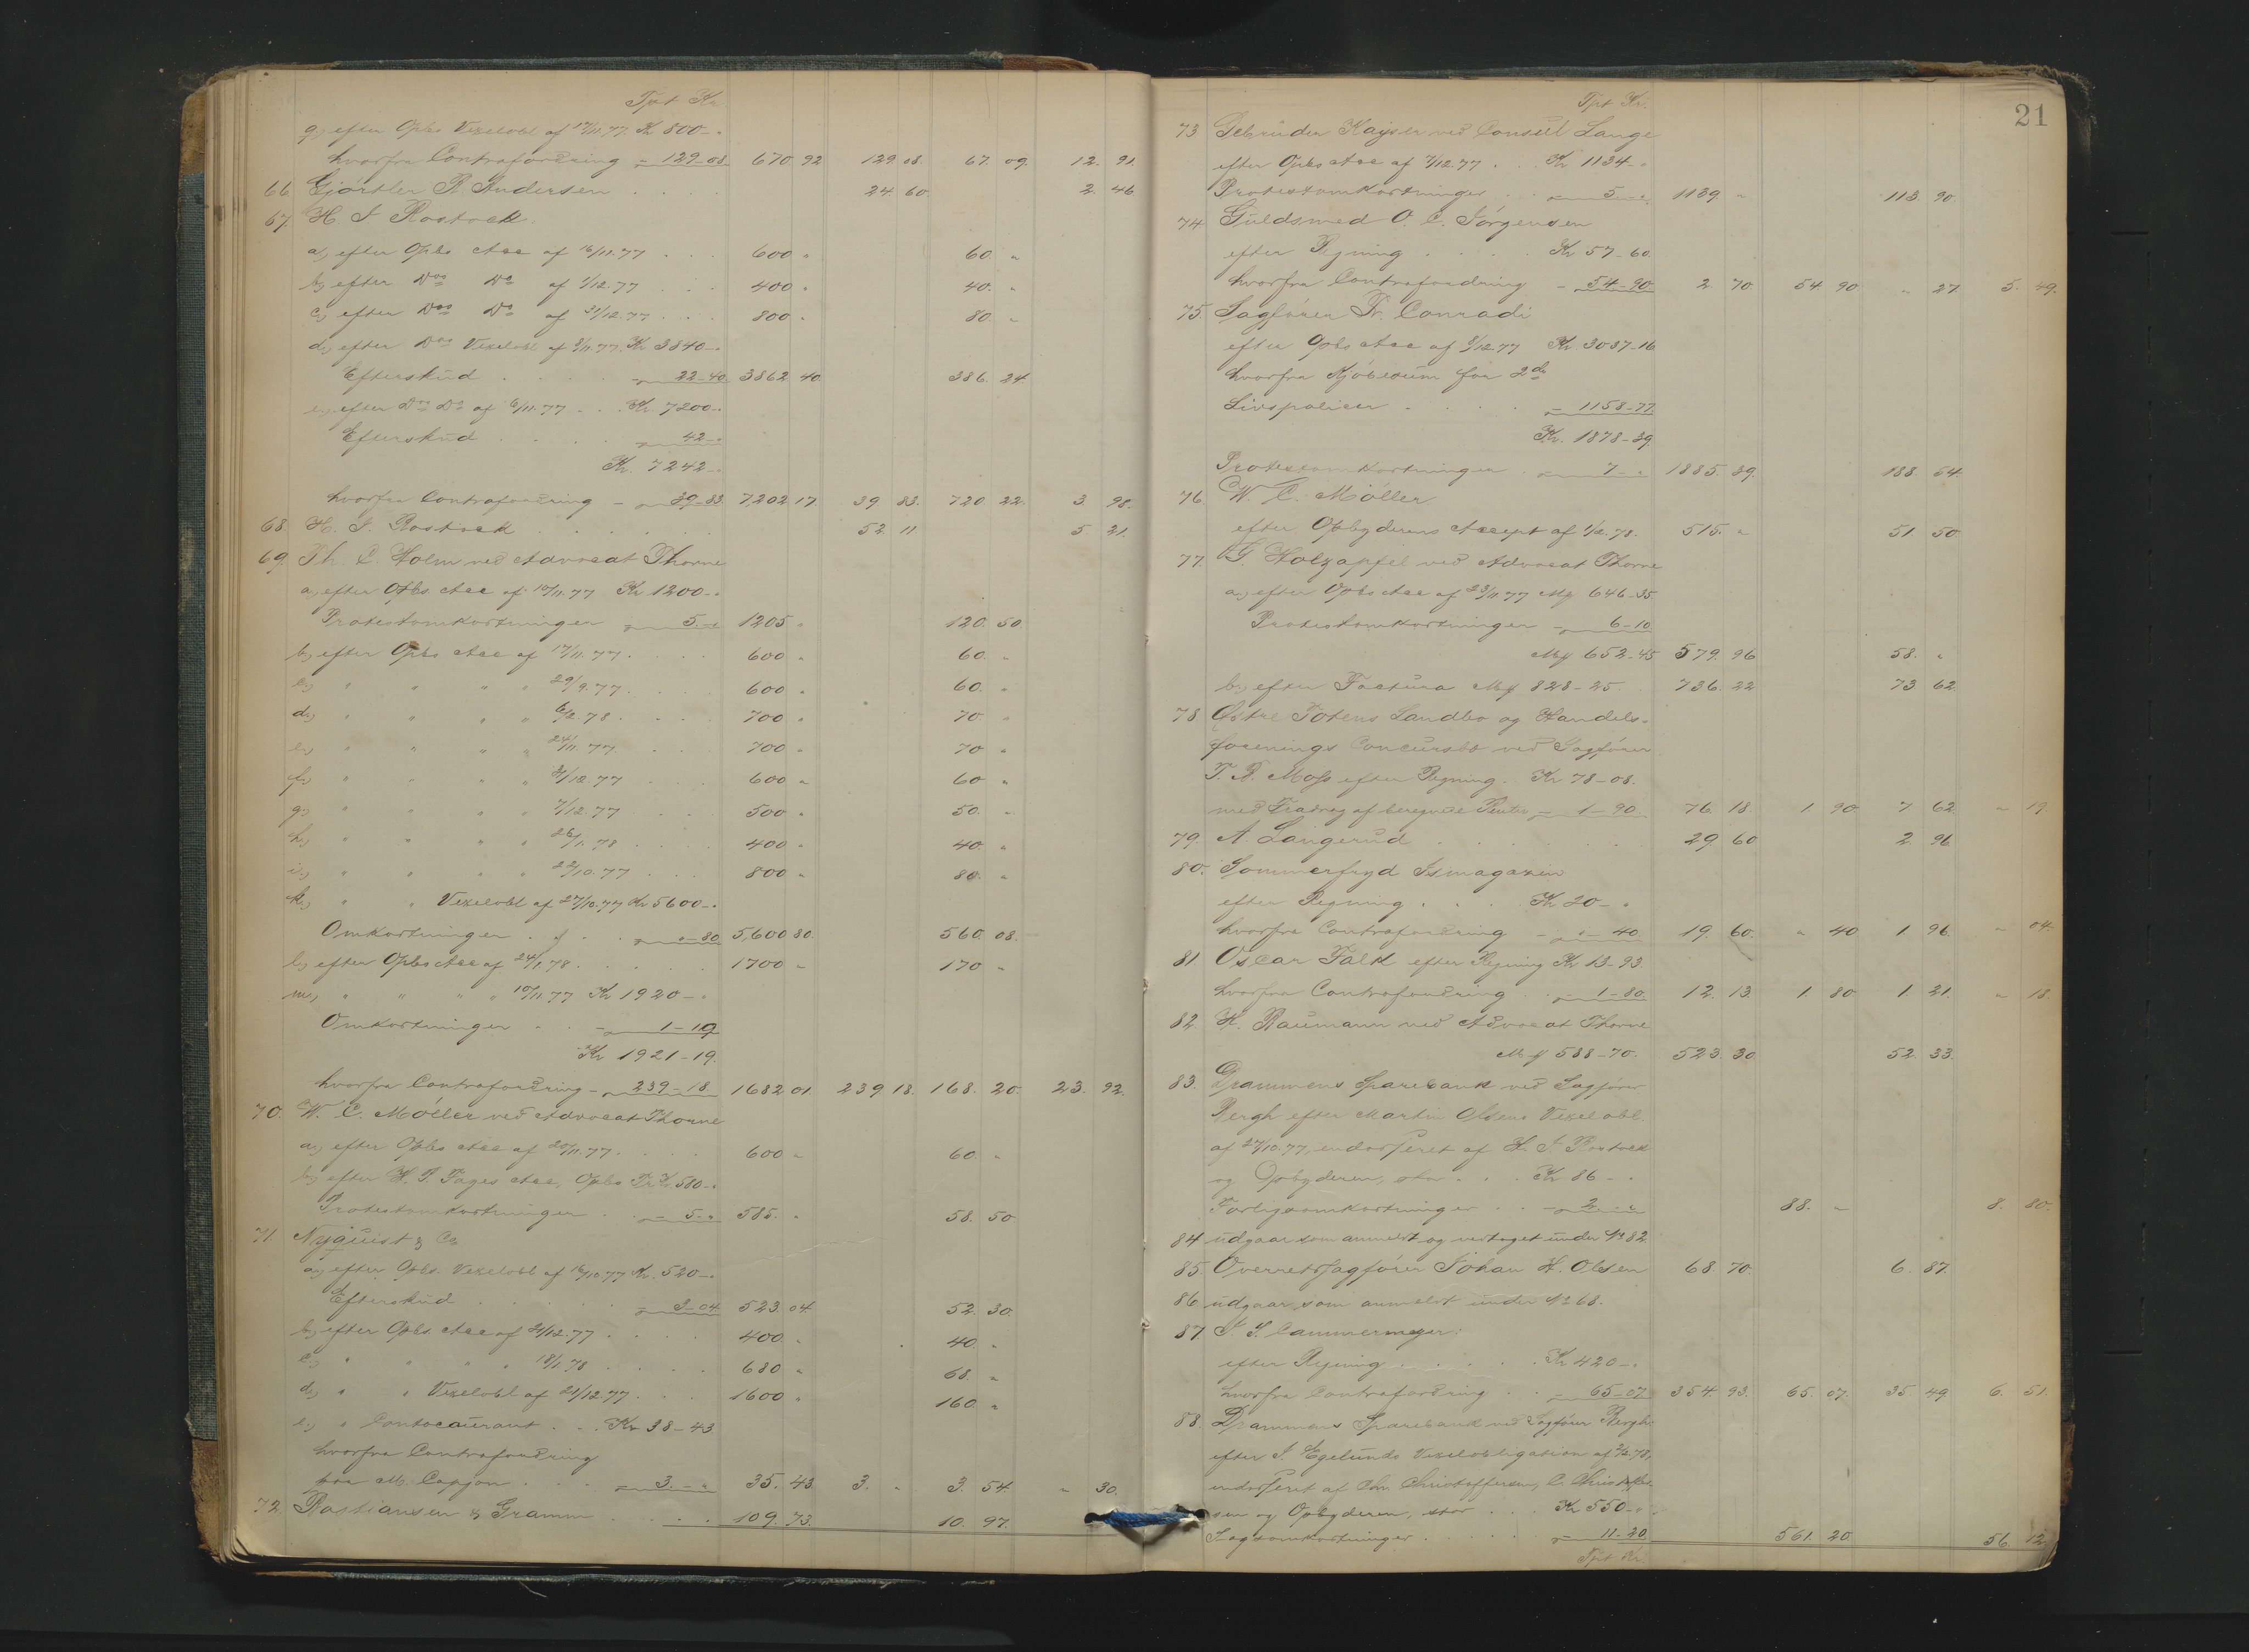 Tpt Kr.
g, efter Opbs Vexelobl af 17/11.77. Kr 800-"
hvorfra Contrafordring - 129-08. 670 92 129 08. 67. 09. 12. 91.
66 Gjörtler R Andersen . . . . 24 60. 2. 46
67. H. J Rostock.
a, efter Opbs Acc af 16/11.77 . . . 600 " 60. "
b, efter Dos Do af 1/12.77 . . . 400 " 40. "
c, efter Dos Do af 31/12.77 . . . 800 " 80. "
d, efter Dos Vexelobl af 3/11.77. Kr 3840-"
Efterskud . . . . - 22-40. 3862 40. 386. 24
e, efter Dos Do af 6/11.77 . . Kr. 7200-"
Efterskud . . . . - 42-"
Kr. 7242-"
hvorfra Contrafordring - 39-83 7,202 17 39 83. 720. 22. 3. 98.
68 H. J. Rostock . . . . . . 52. 11 5 21.
69. Th. C. Holm ved Advocat Thorne
a, efter Opbs. Acc af 10/11.77 Kr 1200-"
Protestomkostninger - 5-" 1205 " 120. 50
b, efter Opbs Acc af 17/11.77 . . . . 600 " 60. "
c, " " " " 29/9.77 . . . . 600 " 60. "
d, " " " " 6/2.78 . . . . 700 " 70 "
e, " " " " 24/11.77 . . . 700 " 70 "
f, " " " " 31/12.77 . . . 600 " 60 "
g, " " " " 7/12.77 . . . 500 " 50. "
h, " " " " 26/1.78 . . . . 400 " 40. "
i, " " " " 22/10.77 . . . 800 " 80. "
k, " " Vexelobl af 27/10.77 Kr 5600-"
Omkostninger . . . . - "-80 5,600 80. 560. 08.
l, efter Opbs Acc af 24/1.78 . . . . . 1700 " 170 "
m, " " " " 10/11.77 Kr 1920-"
Omkostninger . . - 1-19
Kr 1921-19.
hvorfra Contrafordring - 239-18. 1682 01. 239 18. 168. 20. 23. 92.
70. W. C. Möller ved Advocat Thorne
a, efter Opbs Acc af 20/11.77 . . . . 600 " 60. "
b, efter H. P. Fages Acc, Opbs Tr. Kr 580-"
Protestomkostninger . . - 5-" 585. " 58. 50
71. Nyquist & Co
a, efter Opbs. Vexelobl af 16/10.77 Kr. 520-"
Efterskud . . . . . - 3-04 523. 04. 52. 30.
b, efter Opbs. Acc af 31/12.77 . . . . 400. " 40. "
c, " " " " 18/1.78 . . . . 680 " 68. "
d, " " Vexelobl af 21/12.77 . . . 1600 " 160 "
e, " Contocourant . . . Kr 38-43
hvorfra Contrafordring
paa M. Capjon . . . . - 3.-" 35. 43. 3. " 3. 54. " 30.
72. Bastiansen & Gramm . . . . 109. 73. 10. 97.
21
Tpt Kr.
73 Gebrüder Kayser ved Consul Lange
efter Opbs Acc af 7/12.77 . . Kr 1134-"
Protestomkostninger . . - 5-" 1139. " 113. 90.
74. Guldsmed O. C. Jörgensen
efter Regning . . . . Kr 57-60.
hvorfra Contrafordring - 54-90 2. 70. 54. 90 " 27. 5. 49.
75. Sagförer Fr. Conradi
efter Opbs Acc af 3/12.77 Kr. 3037-16
hvorfra Kjöbesum for 2de
Livspolicer . . . . - 1158-77.
Kr. 1878-39.
Protestomkostninger . - 7-" 1885. 39. 188. 54.
76 W. C. Möller
efter Opbyderens Accept af 1/2.78. 515. " 51 50.
77. G. Holzapfel ved Advocat Thorne
a, efter Opbs Acc af 23/11.77 M/ 646-35.
Protestomkostninger - 6-10
M/ 652-45 579. 96 58. "
b, efter Factura M/ 828-25. 736. 22 73 62.
78. Östre Totens Landbo og Handels-
forenings Concursbo ved Sagförer
T. R. Moss efter Regning. Kr 78-08.
med Fradrag af beregnede Renter - 1-90. 76. 18. 1 90 7. 62. " 19
79. A. Langerud . . . . . . . 29 60 2. 96
80. Sommerfryd Ismagazin
efter Regning . . . . Kr 20-"
hvorfra Contrafordring - "-40. 19. 60. " 40 1 96. " 04.
81 Oscar Falk efter Regning Kr 13-93.
hvorfra Contrafordring . - 1-80. 12. 13. 1. 80. 1. 21. " 18.
82. H. Baumann ved Advocat Thorne
M/ 588-70. 523. 30. 52. 33.
83. Drammens Sparebank ved Sagförer
Bergh efter Martin Olsens Vexelobl.
af 27/10.77, endosseret af H. J Rostock
og Opbyderen, stor . . . Kr 86-"
Forligsomkostninger . . - 2-" 88. " 8. 80.
84 udgaar som anmeldt og vedtaget under No 82.
85. Overretssagförer Johan H. Olsen 68. 70. 6. 87.
86. udgaar, som anmeldt under No 68.
87. J. S. Cammermeyer:
efter Regning . . . . . Kr 420-"
hvorfra Contrafordring . . - 65-07. 354. 93. 65. 07. 35. 49. 6. 51.
88. Drammens Sparebank ved Sagförer Bergh
efter J. Egelunds Vexelobligation af 2/2.78,
endosseret af Chr. Christoffersen, C. Christoffer-
sen og Opbyderen, stor . . . Kr 550-"
Sagsomkostninger . . . . . - 11-20 561. 20. 56. 12.
Tpt Kr.